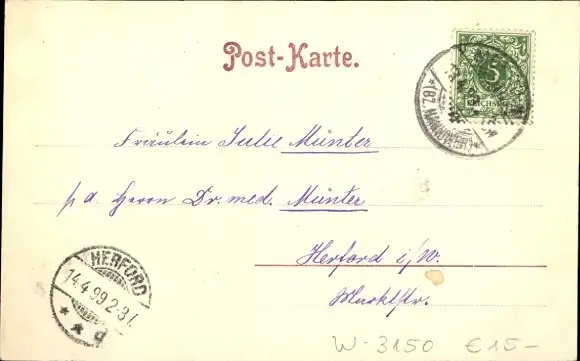 Post-Karte.
5
REICHSPOST
(BZ. HANNOVER)
Fräulein Julie Münter
p. a. Herrn Dr. med. Münter
Herford i/W.
Marktstr.
HERFORD
14.4.99.2-3
W-3150 €15-